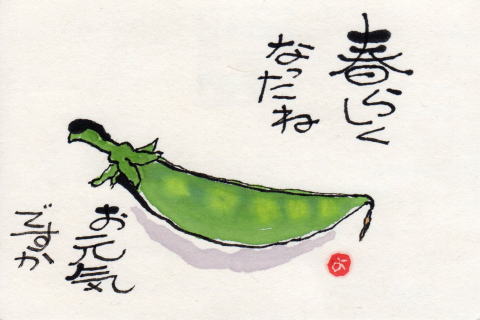 春らしく
なったね
お元気
ですか